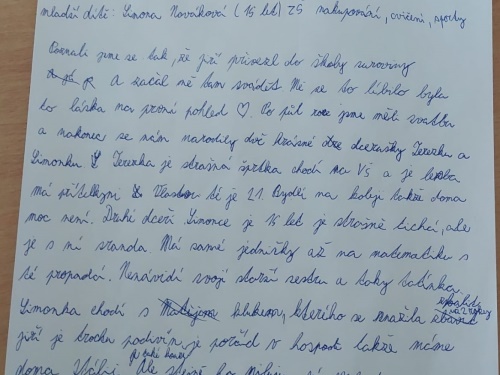 mladší dítě: Simona Nováková (15 let) ZŠ nakupování, cvičení, sporty
Poznali jsme se tak, že Jiří přivezl do školy suroviny
A začal mě tam svádět Mě se to líbilo byla
to láska na první pohled ♡. Po půl roce jsme měli svatbu
a nakonec se nám narodily dvě krásné dcerušky Terezku a
Simonku Terezka je strašná šprtka chodí na VŠ a je lesba
má přítelkyni té je 21 Bydlí na koleji takže doma
moc není. Druhé dceři Simonce je 15 let je strašně tichá, ale
je s ní sranda. Má samé jedničky až na matematiku s
té propadá. Nenávidí svojí starší sestru a taky tatínka.
Simonka chodí s klukem, kterého se snažila
Jiří je trochu podivín je pořád v hospodě takže máme
doma Ale stejně ho